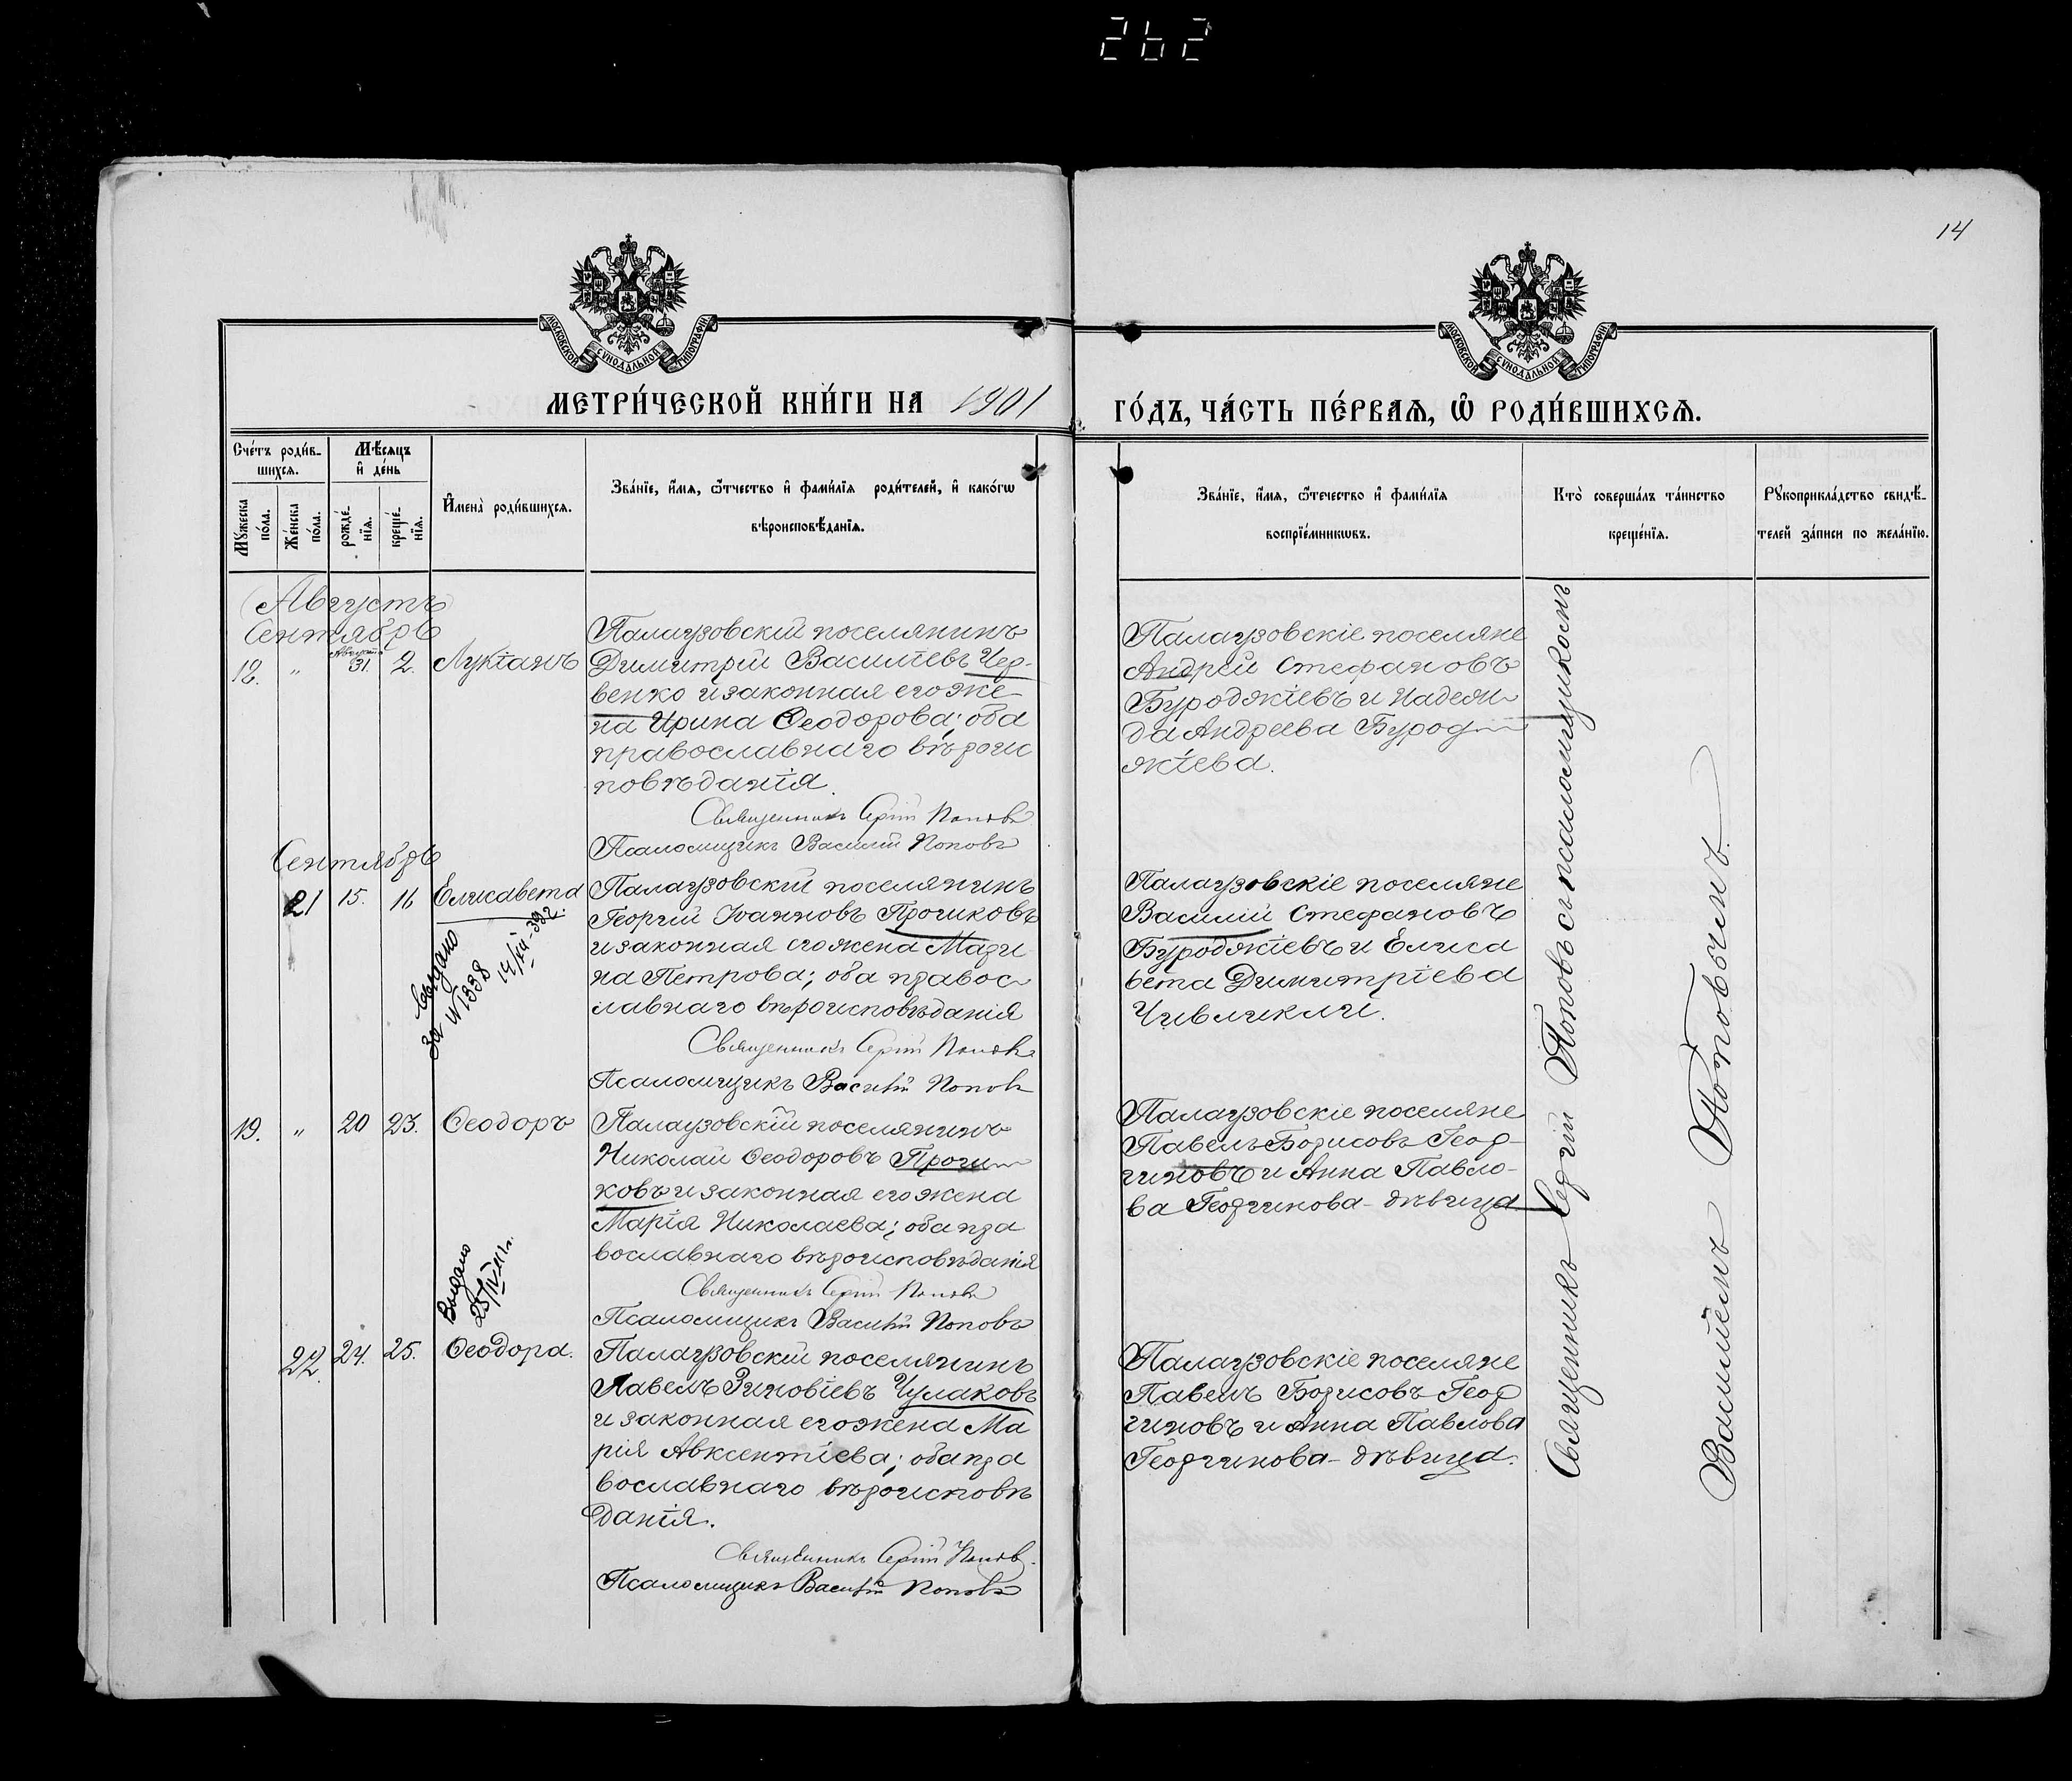 262
14
МОСКОВСКОЙ СѴНОДАЛЬНОЙ ТИПОГРАФІИ
МОСКОВСКОЙ СѴНОДАЛЬНОЙ ТИПОГРАФІИ
МЕТРИ́ЧЕСКОЙ КНИ́ГИ НА 1901
ГО́ДЪ, ЧА́СТЬ ПЕ́РВАѦ, Ѽ РОДИ́ВШИХСѦ.
Сче́тъ роди́в-
шихсѧ.
Мꙋжеска
по́ла.
Же́нска
по́ла.
Мѣ́сѧцъ
и҆ де́нь
рожде́-
нїѧ.
креще́-
нїѧ.
И҆мена̀ роди́вшихсѧ.
Зва́нїе, и҆́мѧ, ѻ҆́тчество и҆ фами́лїѧ роди́телей, и҆ како́гѡ
вѣроисповѣ́данїѧ.
Зва́нїе, и҆́мѧ, ѻ҆́течество и҆ фами́лїѧ
воспрїе́мникѡвъ.
Кто̀ соверша́лъ та́инство
креще́нїѧ.
Рꙋкоприкла́дство свидѣ́-
телей за́писи по жела́нїю.
(Августъ)
Сентябрь
Августа
18. " 31. 2. Лукіанъ
Палаузовскій поселянинъ
Димитрій Василіевъ Чер-
венко и законная его же
на Ирина Ѳеодорова; оба
православнаго вѣроис
повѣданія.
Священникъ Сергій Поповъ
Псаломщикъ Василій Поповъ
Палаузовскіе поселяне
Андрей Стефановъ
Буроджіевъ и Надеж
да Андреева Бурод
жіева.
Сентябрь
21 15. 16 Елисавета
Выдано
за №1338
Палаузовскій поселянинъ
Георгій Іоанновъ Прочиковъ
и законная его жена Мари
на Петрова; оба правос
лавнаго вѣроисповѣданія
Священникъ Сергій Поповъ
Псаломщикъ Василій Поповъ
Палаузовскіе поселяне
Василій Стефановъ
Буроджіевъ и Елиса
вета Димитріева
Чивликли.
19. " 20 23. Ѳеодоръ
Выдано
Палаузовскій поселянинъ
Николай Ѳеодоровъ Прочи
ковъ и законная его жена
Марія Николаева; оба пра
вославнаго вѣроисповѣданія
Священникъ Сергій Поповъ
Псаломщикъ Василій Поповъ
Палаузовскіе поселяне
Павелъ Борисовъ Геор-
гиновъ и Анна Павло-
ва Георгинова - дѣвица
22. 24. 25. Ѳеодора.
Палаузовскій поселянинъ
Павелъ Зиновіевъ Чулаковъ
и законная его жена Ма
рія Авксентіева; оба пра
вославнаго вѣроисповѣ
данія.
Священникъ Сергій Поповъ.
Псаломщикъ Василій Поповъ
Палаузовскіе поселяне
Павелъ Борисовъ Геор
гиновъ и Анна Павлова
Георгинова - дѣвица.
Священникъ Сергій Поповъ съ псаломщикомъ
Василіемъ Поповымъ.